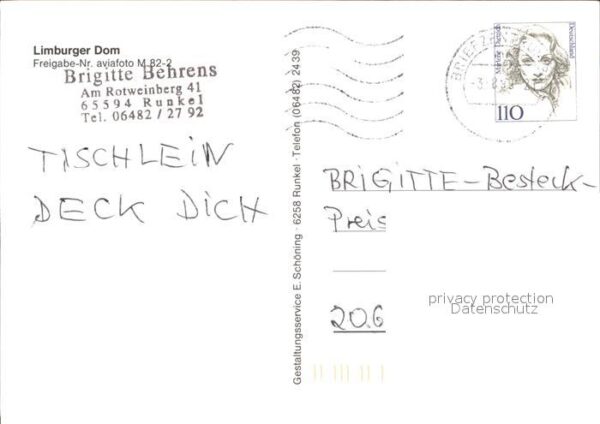 Limburger Dom
Freigabe-Nr. aviafoto M 82-2
Brigitte Behrens
Am Rotweinberg 41
65594 Runkel
Tel. 06482 / 27 92
TISCHLEIN
DECK DICH
Gestaltungsservice E. Schöning · 6258 Runkel · Telefon (06482) 2439
BRIEFZ
Marlene Dietrich
Deutschland
110
BRIGITTE-Besteck-
Preis
20.6
privacy protection
Datenschutz